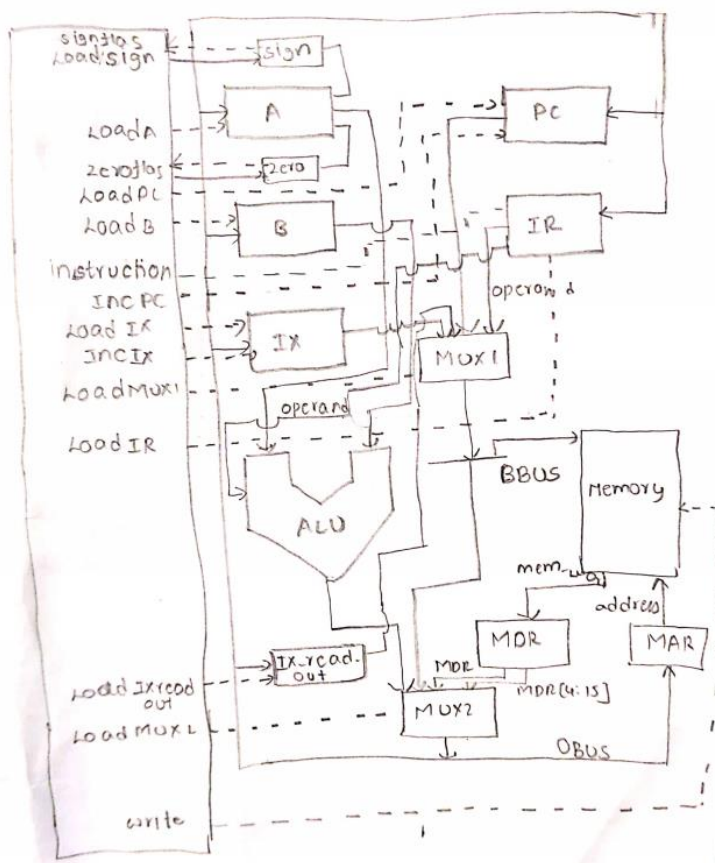 signflas
Load'sign
sign
A
PC
LoadA
zeroflas
zero
LoadPC
LoadB
B
IR
instruction
INCPC
operand
Load IX
INCIX
IX
MUX1
LoadMUX1
operand
LoadIR
BBUS
Memory
ALU
address
MDR
MAR
Ix-read-
out
MDR
MDR[4:15]
Load Ixread
out
MUX2
LoadMUX2
OBUS
write